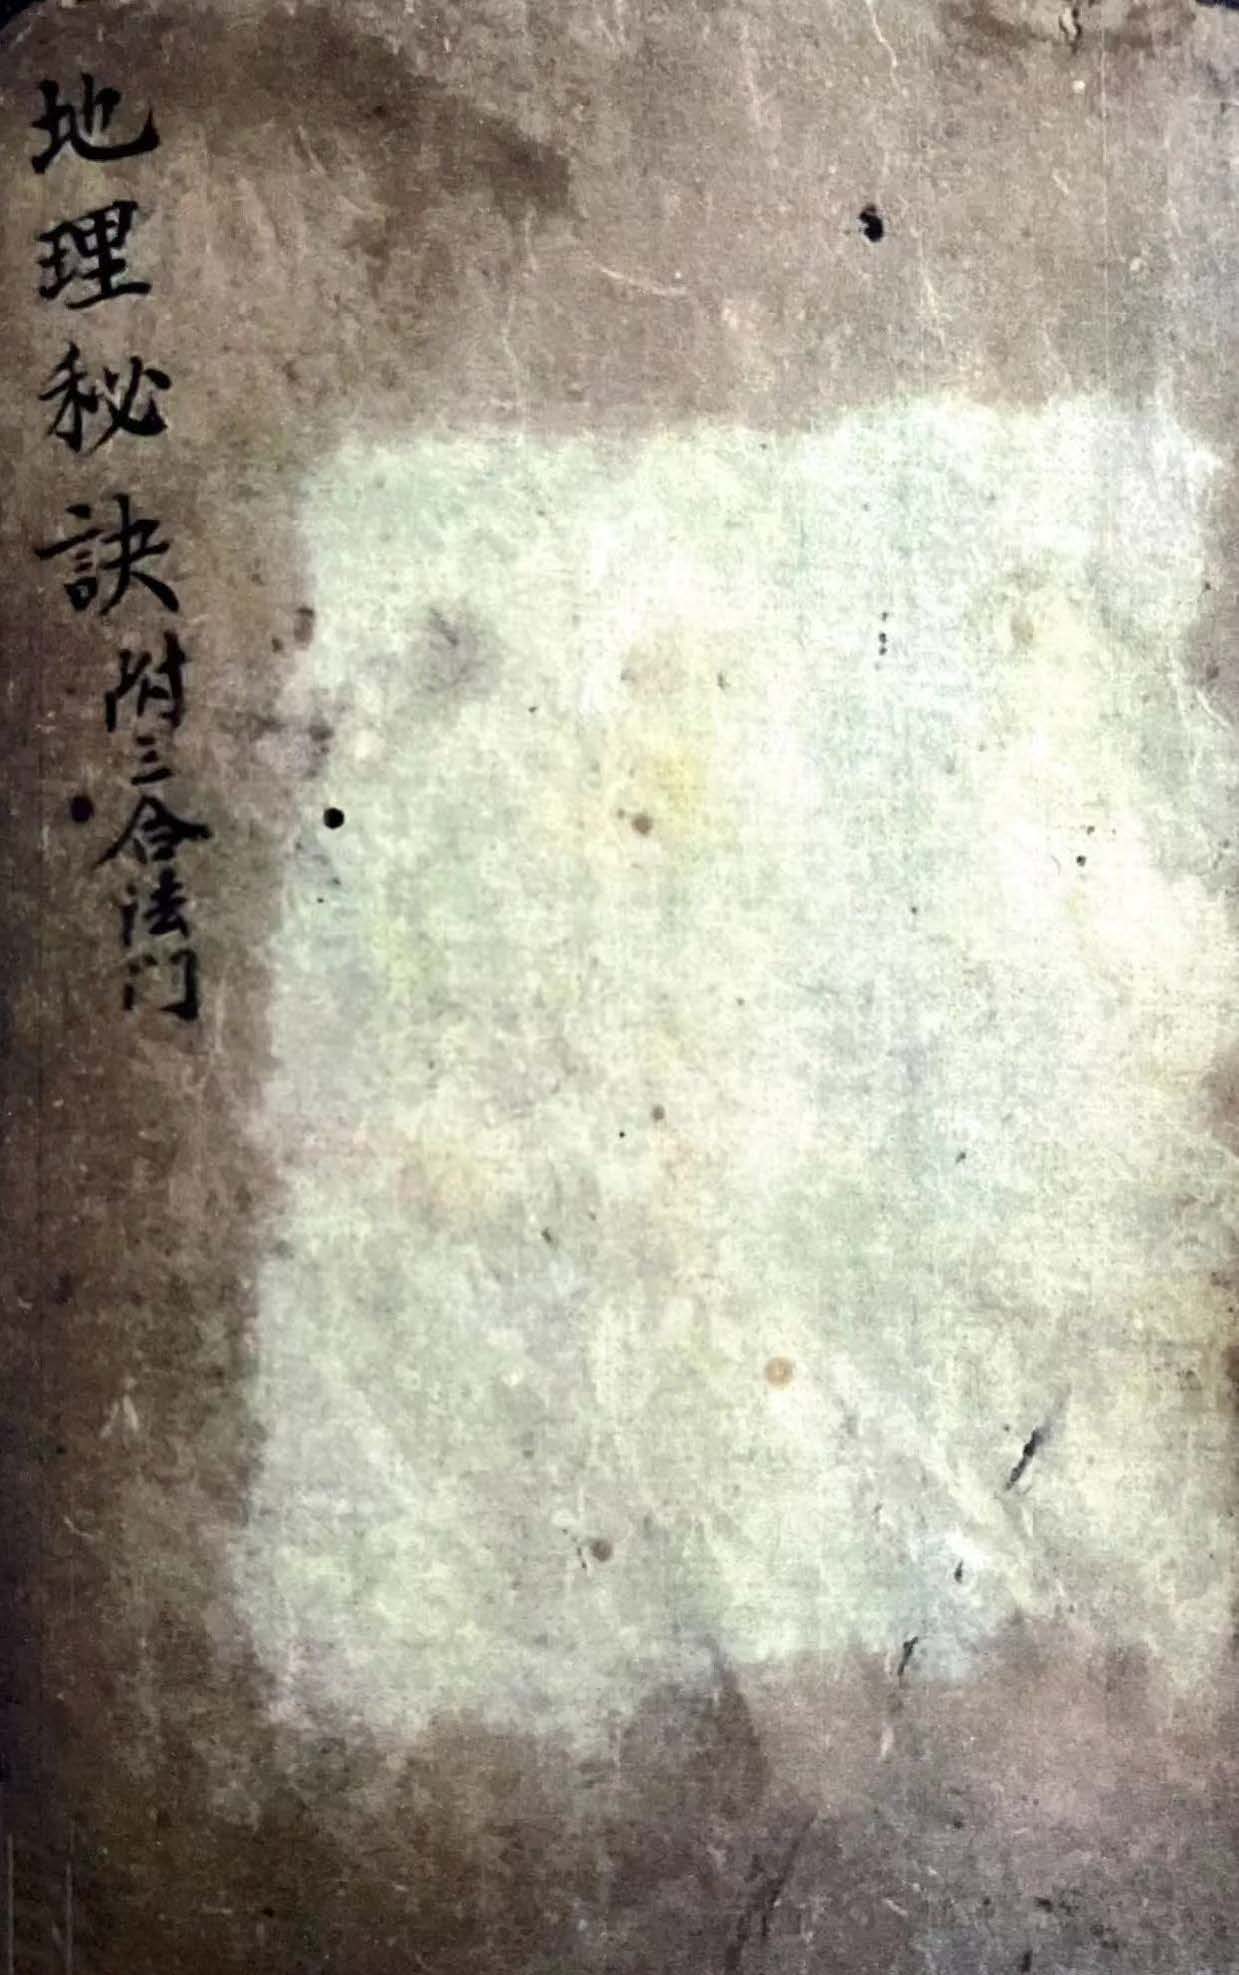 地理秘訣附三合法门